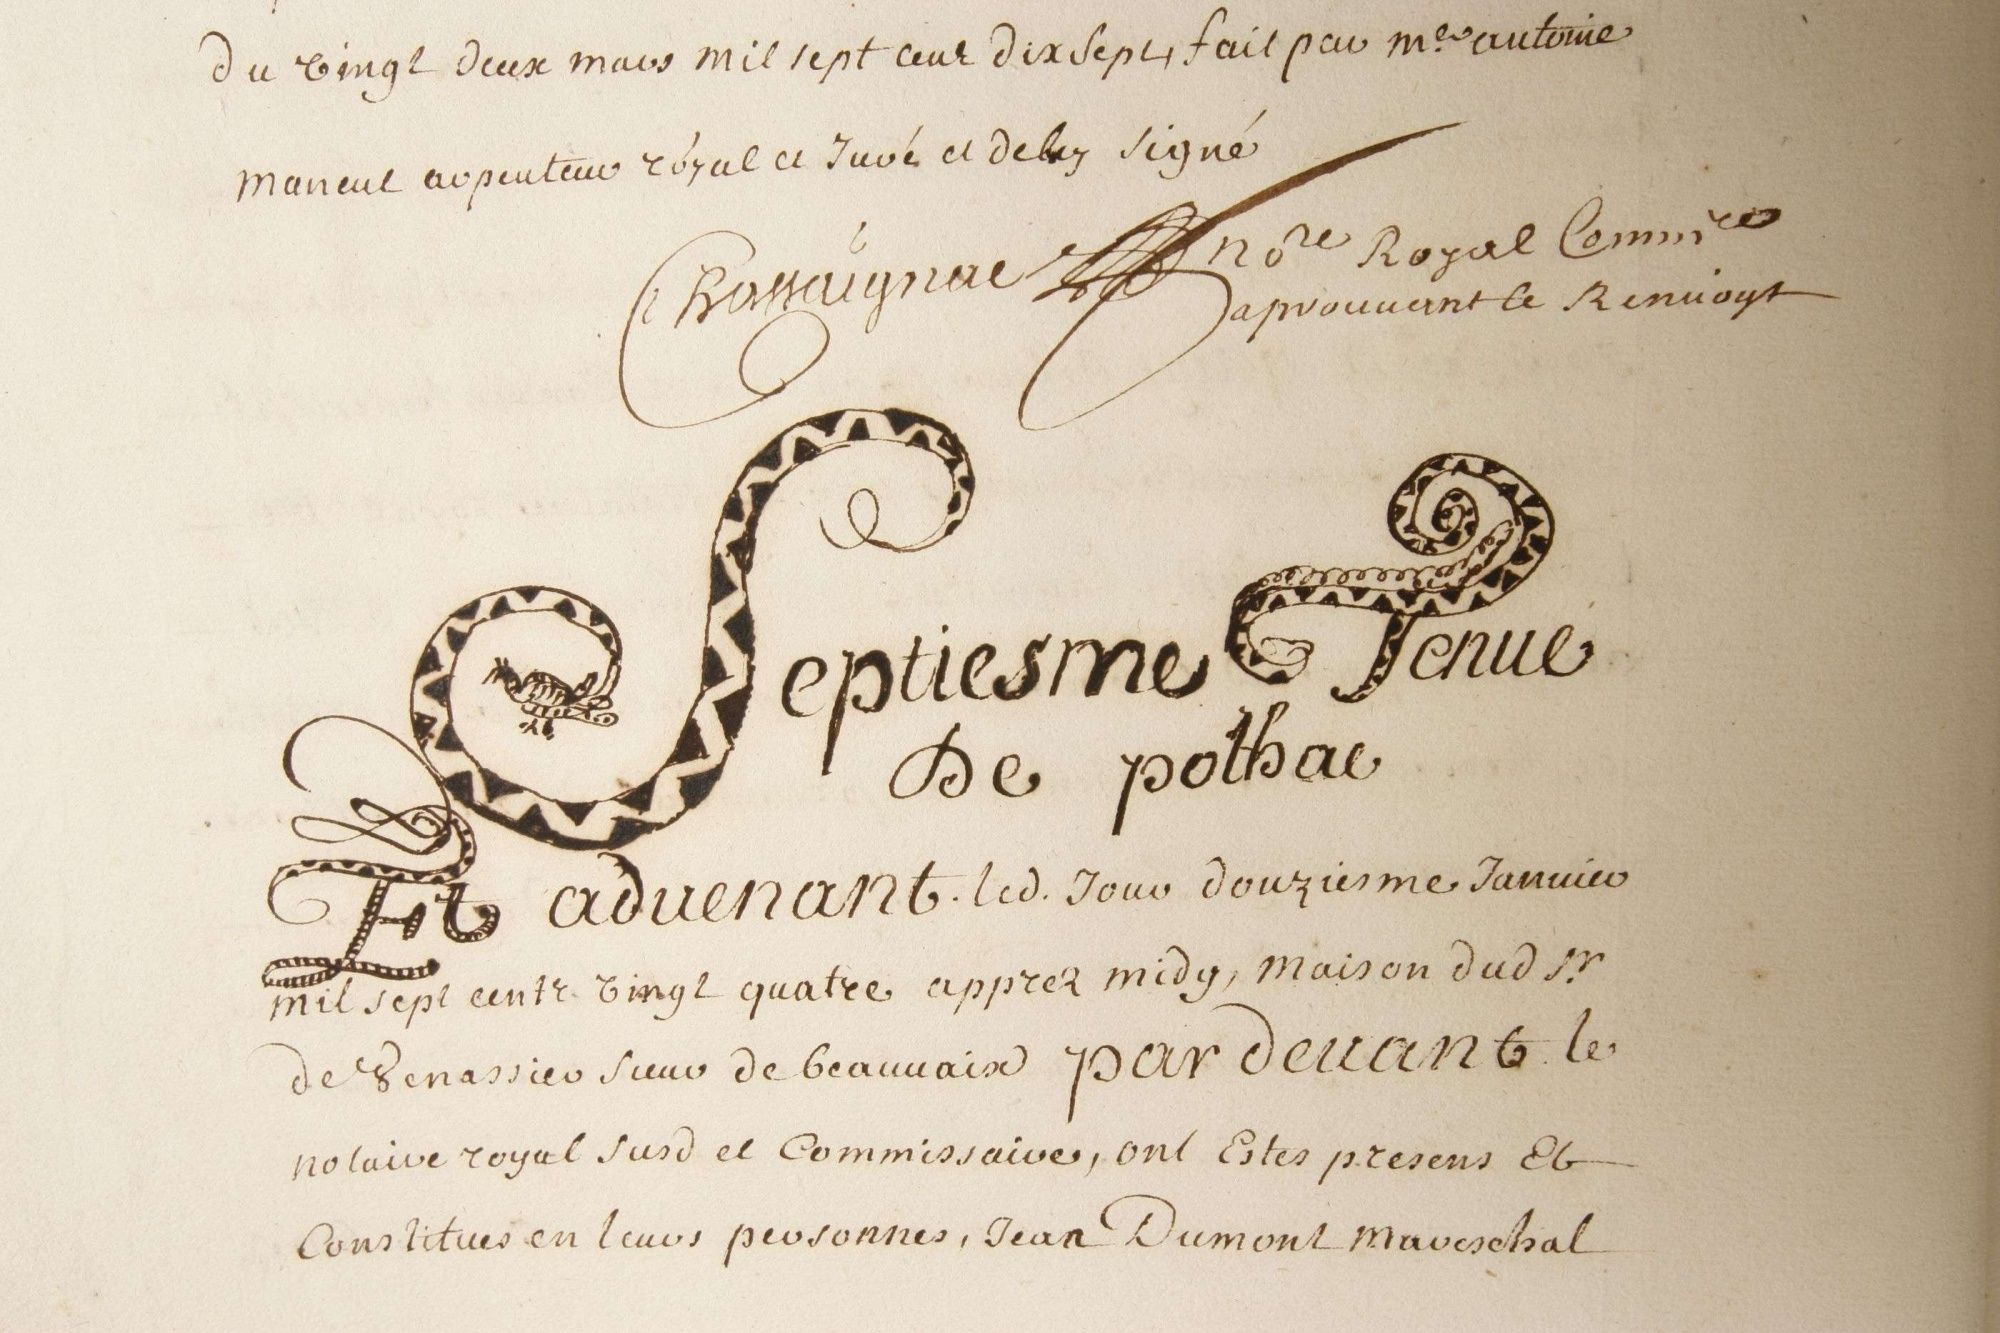 du vingt deux mars mil sept cent dix sept, fait par me antoine
maneut arpenteur royal et Juré et deluy signé
Chassaignac nore Royal Commre
aprouvent le Renvoyt
Septiesme Tenue
De pothac
Et aduenant. led. Jour douziesme Januier
mil sept centz vingt quatre apprez midy, maison dud sr
de Venassier sieur de beauuaix par deuant le
notaire royal susd et Commissaire, ont Estes presens Et
Constitues en leurs personnes, Jean Dumont mareschal